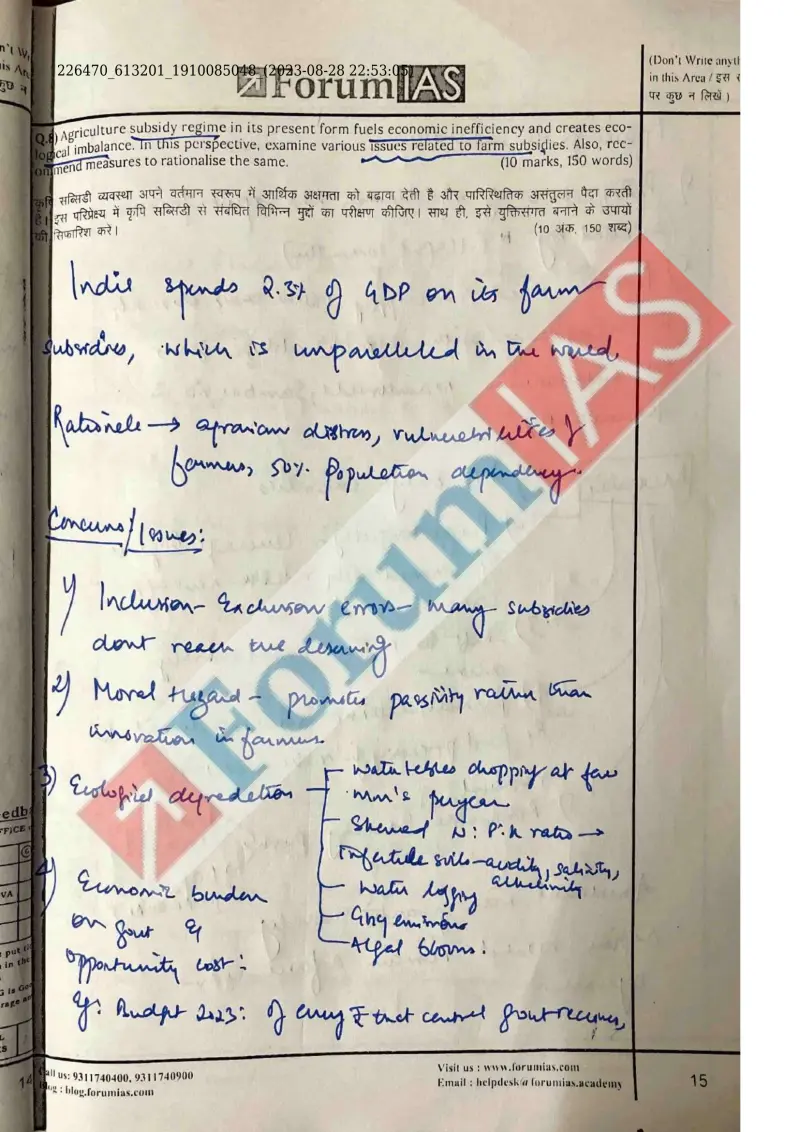 226470_613201_1910085048 (2023-08-28 22:53:05)
ForumIAS
(Don't Write anyth
in this Area / इस
पर कुछ न लिखें )
Q.8) Agriculture subsidy regime in its present form fuels economic inefficiency and creates eco-
logical imbalance. In this perspective, examine various issues related to farm subsidies. Also, rec-
ommend measures to rationalise the same. (10 marks, 150 words)
कृषि सब्सिडी व्यवस्था अपने वर्तमान स्वरूप में आर्थिक अक्षमता को बढावा देती है और पारिस्थितिक असंतुलन पैदा करती
है। इस परिप्रेक्ष्य में कृषि सब्सिडी से संबंधित विभिन्न मुद्दों का परीक्षण कीजिए। साथ ही, इसे युक्तिसंगत बनाने के उपायों
की सिफारिश करे। (10 अंक, 150 शब्द)
India spends 2.3% of GDP on its farm
subsidies, which is unparalleled in the world.
Rationale → agrarian distress, vulnerabilities of
farmers, 50% population dependency.
Concerns/Issues:
1) Inclusion-Exclusion errors - many subsidies
dont reach the deserving
2) Moral Hazard - promotes passivity rather than
innovation in farmers
3) Ecological degradation
- water tables dropping at few
mm's per year
- Skewed N:P:K ratio →
Infertile soils - acidity, salinity,
alkalinity
- Water logging
- GHG emissions
- Algal blooms.
4) Economic burden
on govt &
opportunity cost:
Eg: Budget 2023: Of every ₹ that central govt receives,
Call us: 9311740400, 9311740900
Blog : blog.forumias.com
Visit us : www.forumias.com
Email : helpdesk@forumias.academy
15
ForumIAS